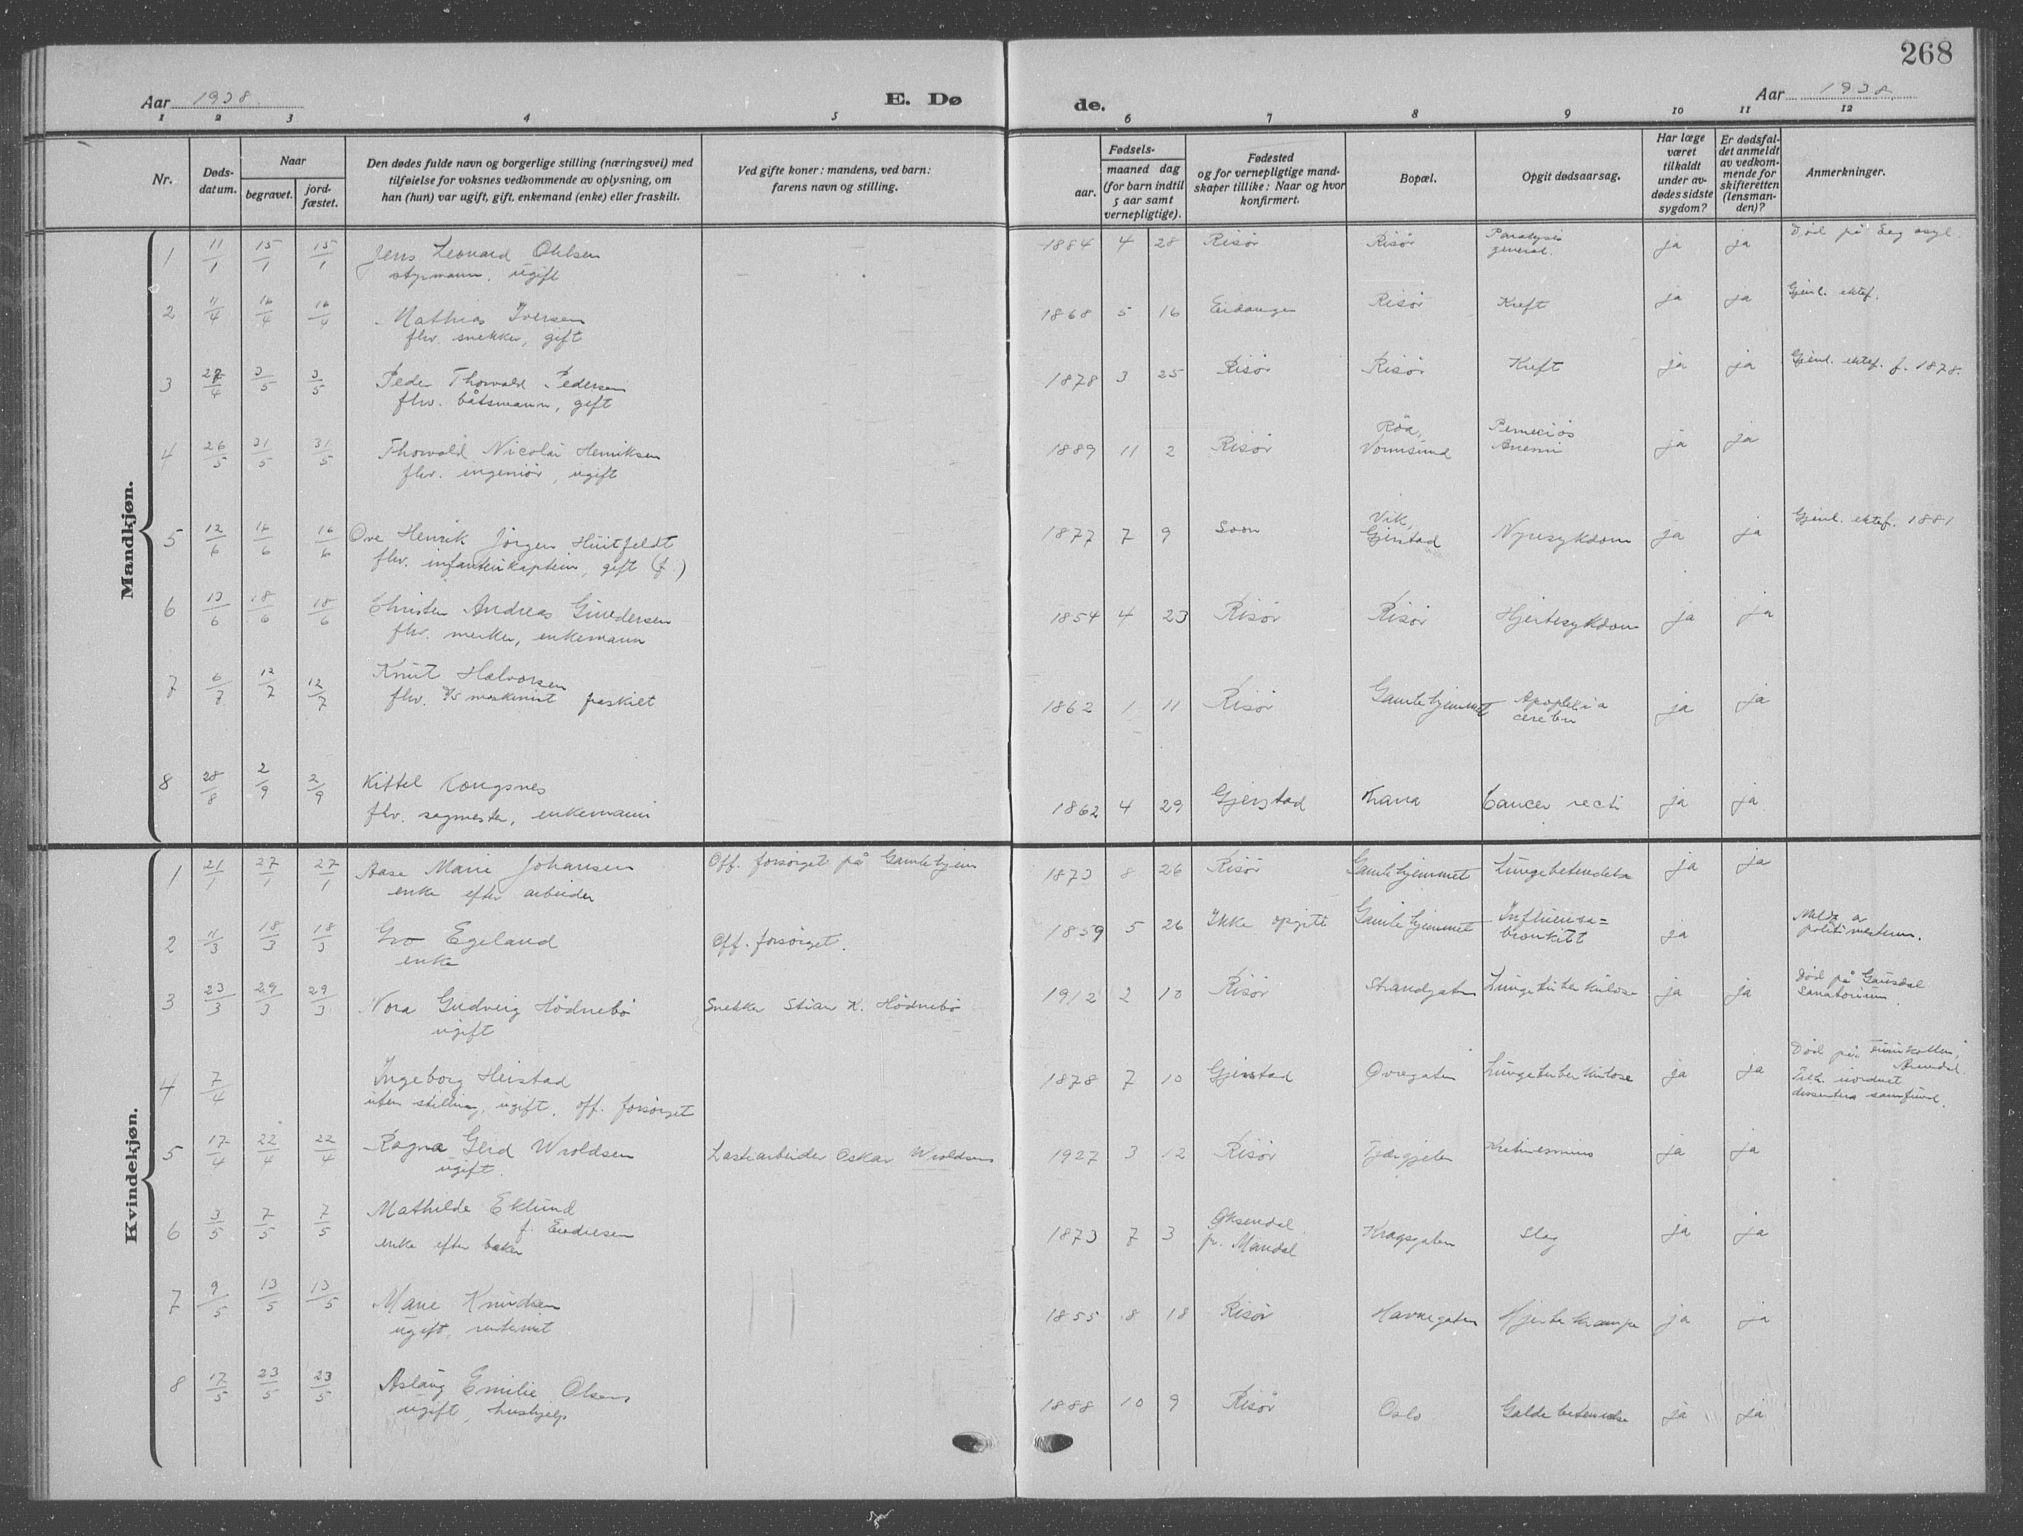 268
Aar 1938.
E. Dø
de.
Aar 1938.
1 2 3 4 5 6 7 8 9 10 11 12
Nr.
Døds-
datum.
Naar
begravet.
jord-
fæstet.
Den dødes fulde navn og borgerlige stilling (næringsvei) med
tilføielse for voksnes vedkommende av oplysning, om
han (hun) var ugift, gift, enkemand (enke) eller fraskilt.
Ved gifte koner: mandens, ved barn:
farens navn og stilling.
Fødsels-
aar.
maaned dag
(for barn indtil
5 aar samt
vernepligtige).
Fødested
og for vernepligtige mand-
skaper tillike: Naar og hvor
konfirmert.
Bopæl.
Opgit dødsaarsag.
Har læge
været
tilkaldt
under av-
dødes sidste
sygdom?
Er dødsfal-
det anmeldt
av vedkom-
mende for
skifteretten
(lensman-
den)?
Anmerkninger.
Mandkjøn.
1 11/1 15/1 15/1 Jens Leonard Ohlsen 1884 4 28 Risør Risør Paralysis ja ja Død på
styrmann. ugift general.
2 11/4 16/4 16/4 Mathias Iversen 1868 5 16 Eidanger Risør Kreft ja ja Gjenl. ektef.
fhv. snekker, gift
3 28/4 3/5 3/5 Peder Thorvald Pedersen 1878 3 25 Risør Risør Kreft ja ja Gjenl. ektef. f. 1878.
fhv. båtsmann, gift
4 26/5 31/5 31/5 Thorvald Nicolai Henriksen 1889 11 2 Risør Røa, Pernesiøs ja ja
fhv. ingeniør, ugift Anemi
5 12/6 16/6 16/6 Ove Henrik Jørgen Huitfeldt 1877 7 9 Soon Vik, Gjerstad Nyresykdom ja ja Gjenl. ektef. 1881
fhv. infanterikaptein, gift (f.)
6 13/6 18/6 18/6 Christen Andreas 1854 4 23 Risør Risør Hjertesykdom ja ja
fhv. merker, enkemann
7 6/7 12/7 12/7 Knut Halvorsen 1862 1 11 Risør Gamlehjemmet Apoplexia ja ja
fhv. maskinist fraskilt cerebri
8 28/8 2/9 2/9 Kittel Kongsnes 1862 4 29 Gjerstad Krana Cancer recti ja ja
fhv. sagmester, enkemann
Kvindekjøn.
1 21/1 27/1 27/1 Aase Marie Johansen Off. forsørget på Gamlehjem 1873 8 26 Risør Gamlehjemmet Lungebetendelse ja ja
enke efter arbeider
2 11/3 18/3 18/3 Gro Egeland Off. forsørget. 1859 5 26 Ikke opgitt Gamlehjemmet Influensa= ja Meldt av
enke bronkitt politimesteren.
3 23/3 29/3 29/3 Nora Gudveig Hødnebø Snekker Stian K. Hødnebø 1912 2 10 Risør Strandgaten Lungetuberkulose ja ja Død på Gausdal
ugift sanatorium.
4 7/4 Ingeborg Heistad 1878 7 10 Gjerstad Øvregaten Lungetuberkulose ja ja Død på
uten stilling, ugift. off. forsørget Arendal
Tilh. nordnet
dissenter samfund.
5 17/4 22/4 22/4 Ragna Gerd Wroldsen Lastearbeider Oskar Wroldsen 1927 3 12 Risør Tjærgjelen Kretinisme ja ja
ugift.
6 3/5 7/5 7/5 Mathilde Eklund 1873 7 3 Øksendal Kragsgaten Slag ja ja
f. Endresen pr. Mandal
enke efter baker
7 9/5 13/5 13/5 Marie Knudsen 1855 8 18 Risør Havnegaten Hjertekrampe ja ja
ugift, rentenist
8 17/5 23/5 23/5 Aslaug Emilie Olsen 1888 10 9 Risør Oslo Galdebetendelse ja ja
ugift, hushjelp